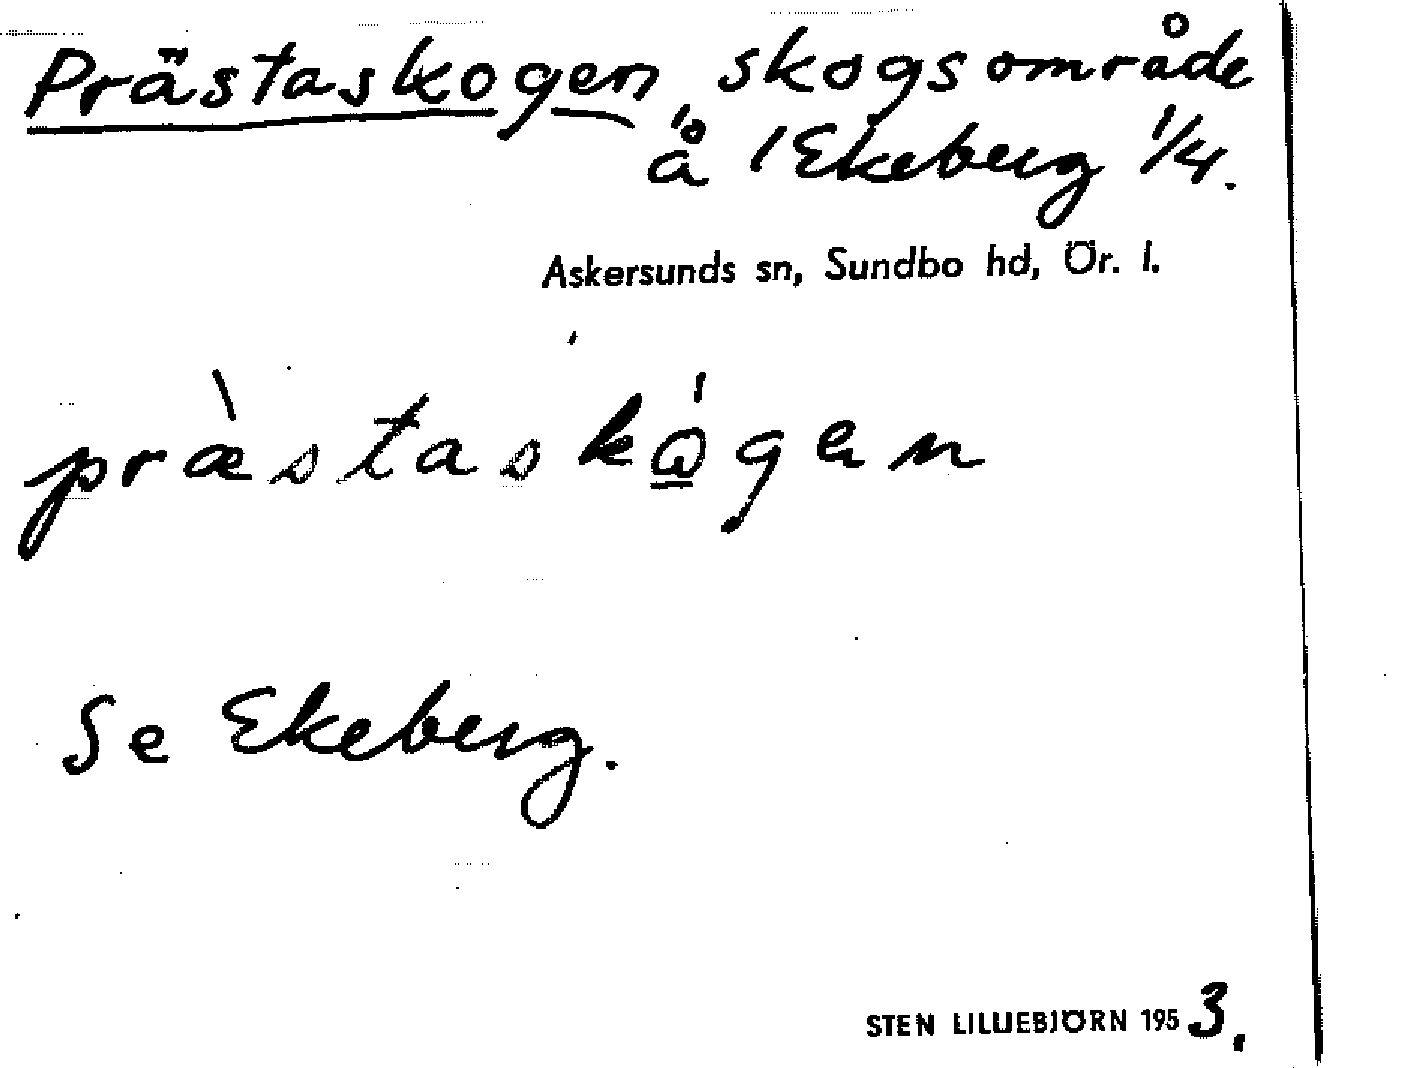 Prästaskogen, skogsområde
å 1 Ekeberg 1/4.
Askersunds sn, Sundbo hd, Ör. l.
præ̀staskώ̲gen
Se Ekeberg.
STEN LILLIEBJÖRN 1953.